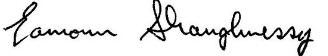 Eamonn Shaughnessy